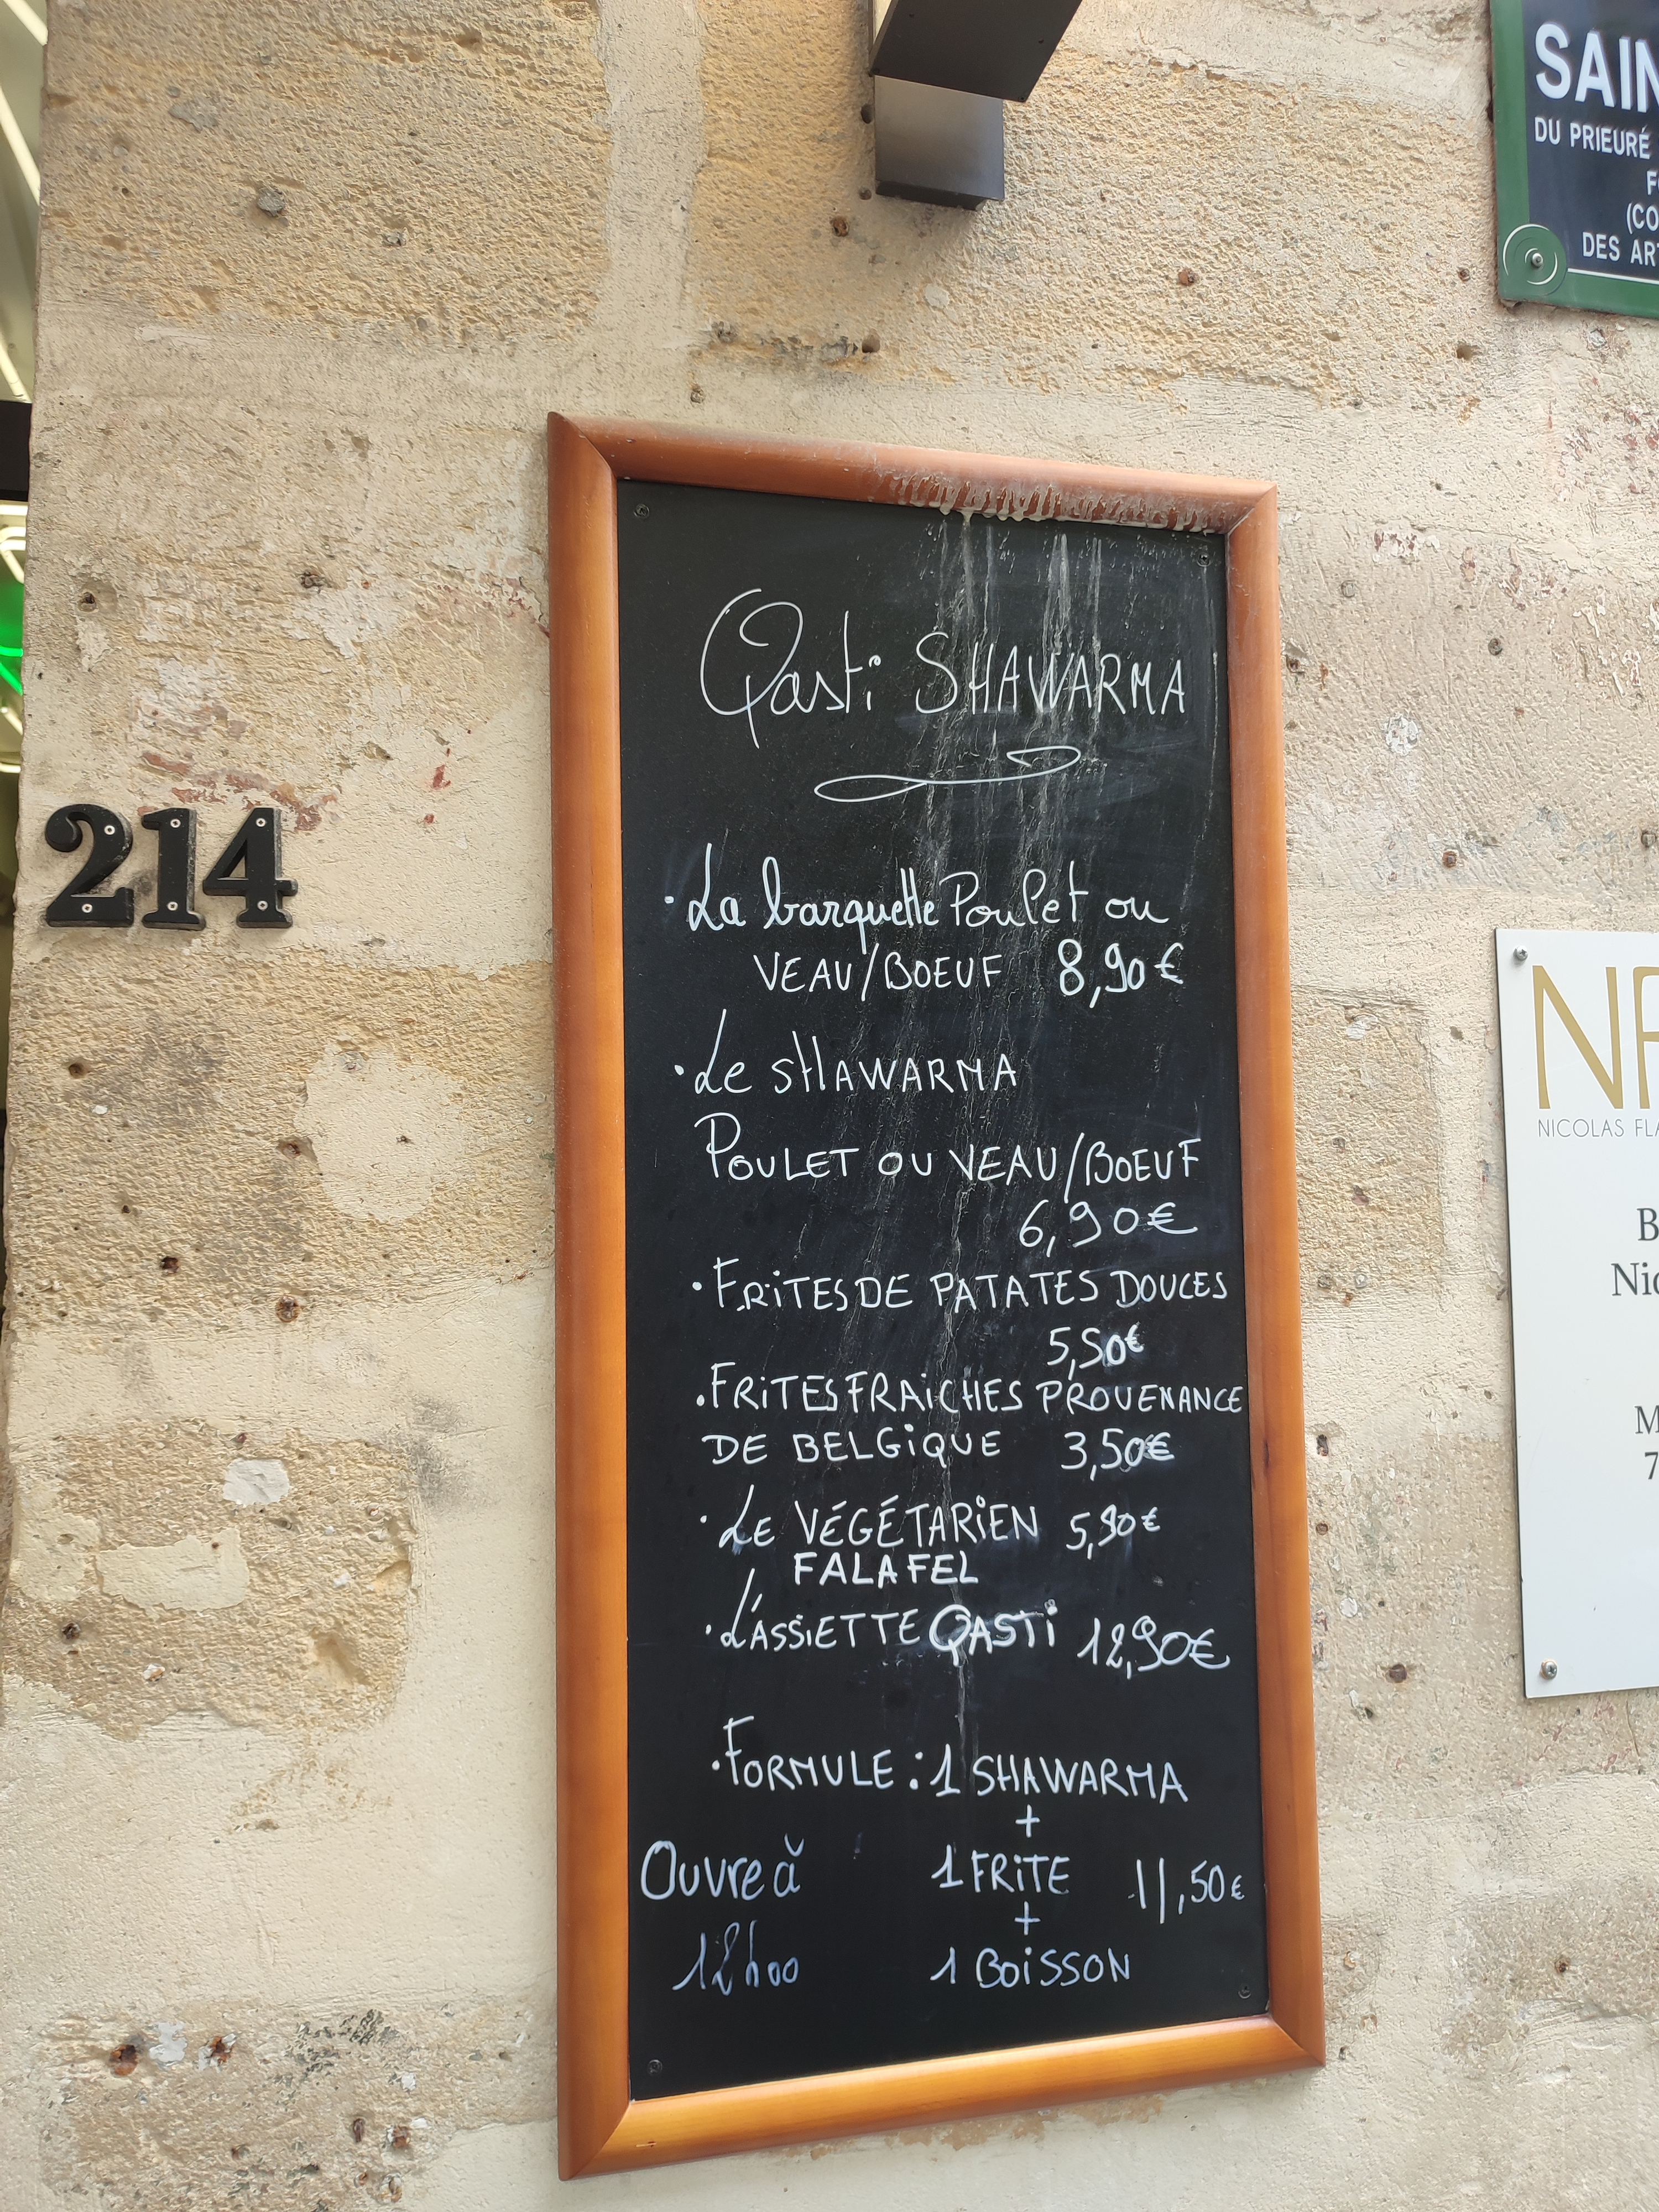 SAIN
DU PRIEURÉ
DES ART
214
Qasti SHAWARMA
• La barquette Poulet ou
VEAU/BOEUF 8,90€
• Le SHAWARMA
POULET OU VEAU/BOEUF
6,90€
• FRITES DE PATATES DOUCES
5,50€
• FRITES FRAICHES PROVENANCE
DE BELGIQUE 3,50€
• LE VÉGÉTARIEN 5,90€
FALAFEL
• L'ASSIETTE QASTI 12,90€
• FORMULE : 1 SHAWARMA
+
Ouvre à 1 FRITE 11,50€
+
12h00 1 BOISSON
NICOLAS FLA
B
Nic
M
7